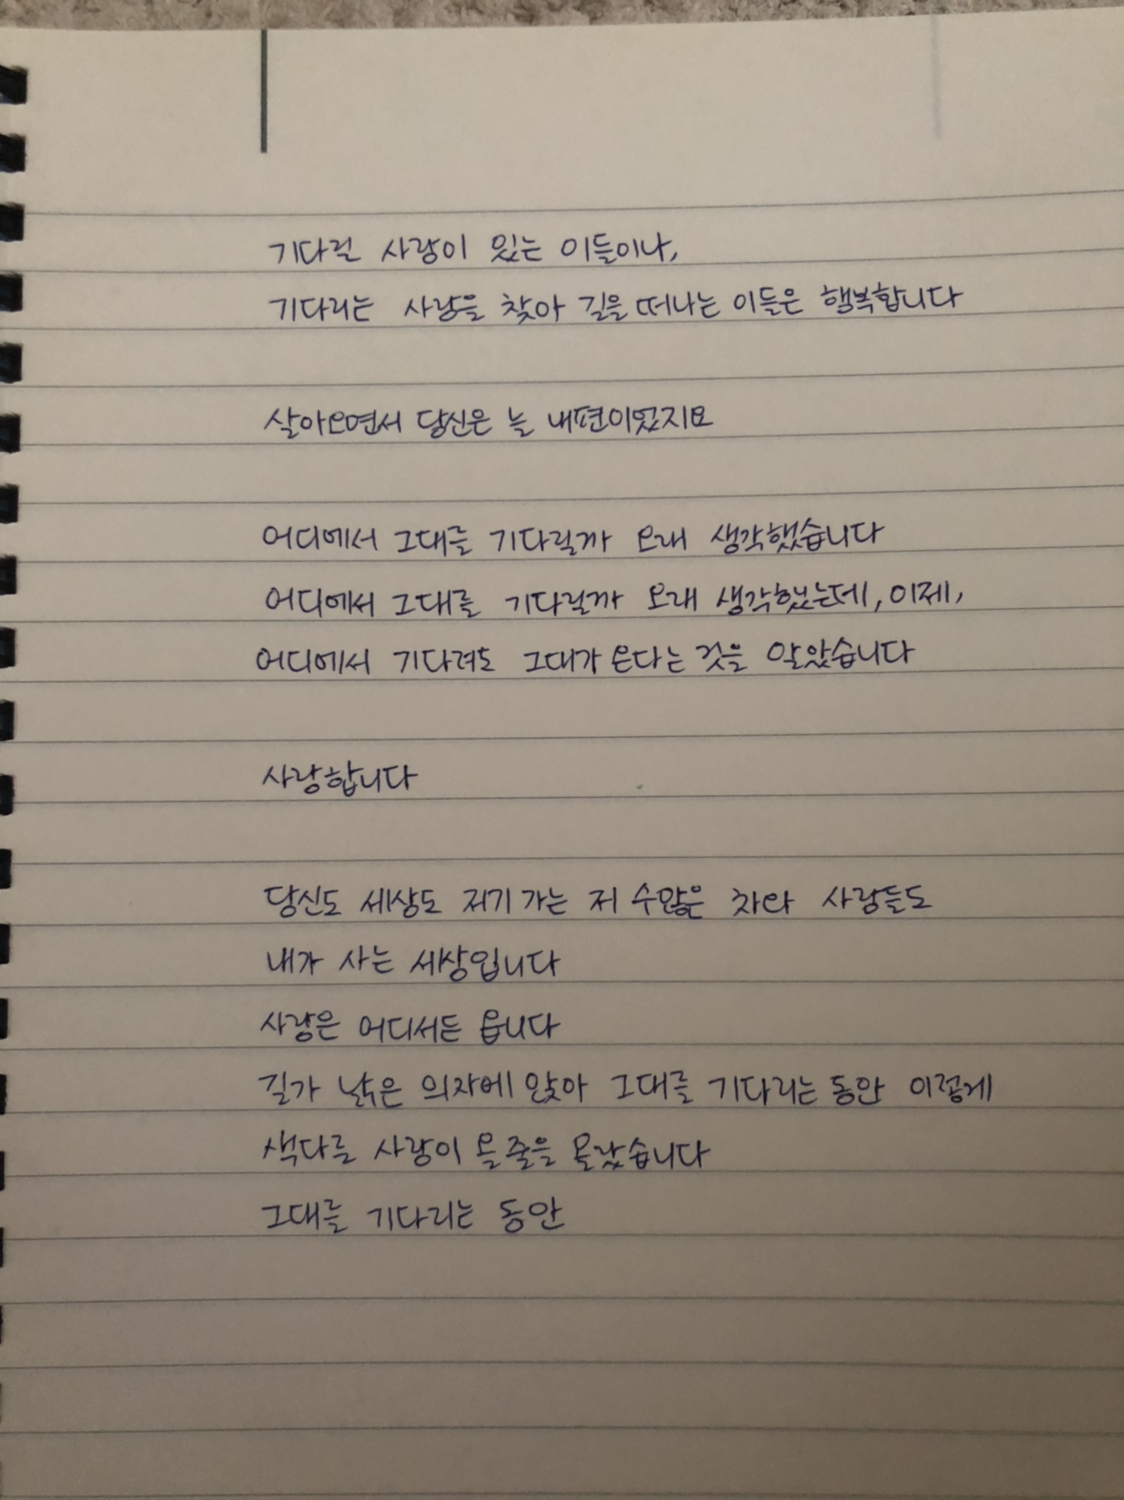 기다릴 사랑이 있는 이들이나,
기다리는 사랑을 찾아 길을 떠나는 이들은 행복합니다
살아오면서 당신은 늘 내편이었지요
어디에서 그대를 기다릴까 오래 생각했습니다
어디에서 그대를 기다릴까 오래 생각했는데, 이제,
어디에서 기다려도 그대가 온다는 것을 알았습니다
사랑합니다
당신도 세상도 저기 가는 저 수많은 차와 사람들도
내가 사는 세상입니다
사랑은 어디서든 옵니다
길가 낡은 의자에 앉아 그대를 기다리는 동안 이렇게
색다른 사랑이 올 줄을 몰랐습니다
그대를 기다리는 동안